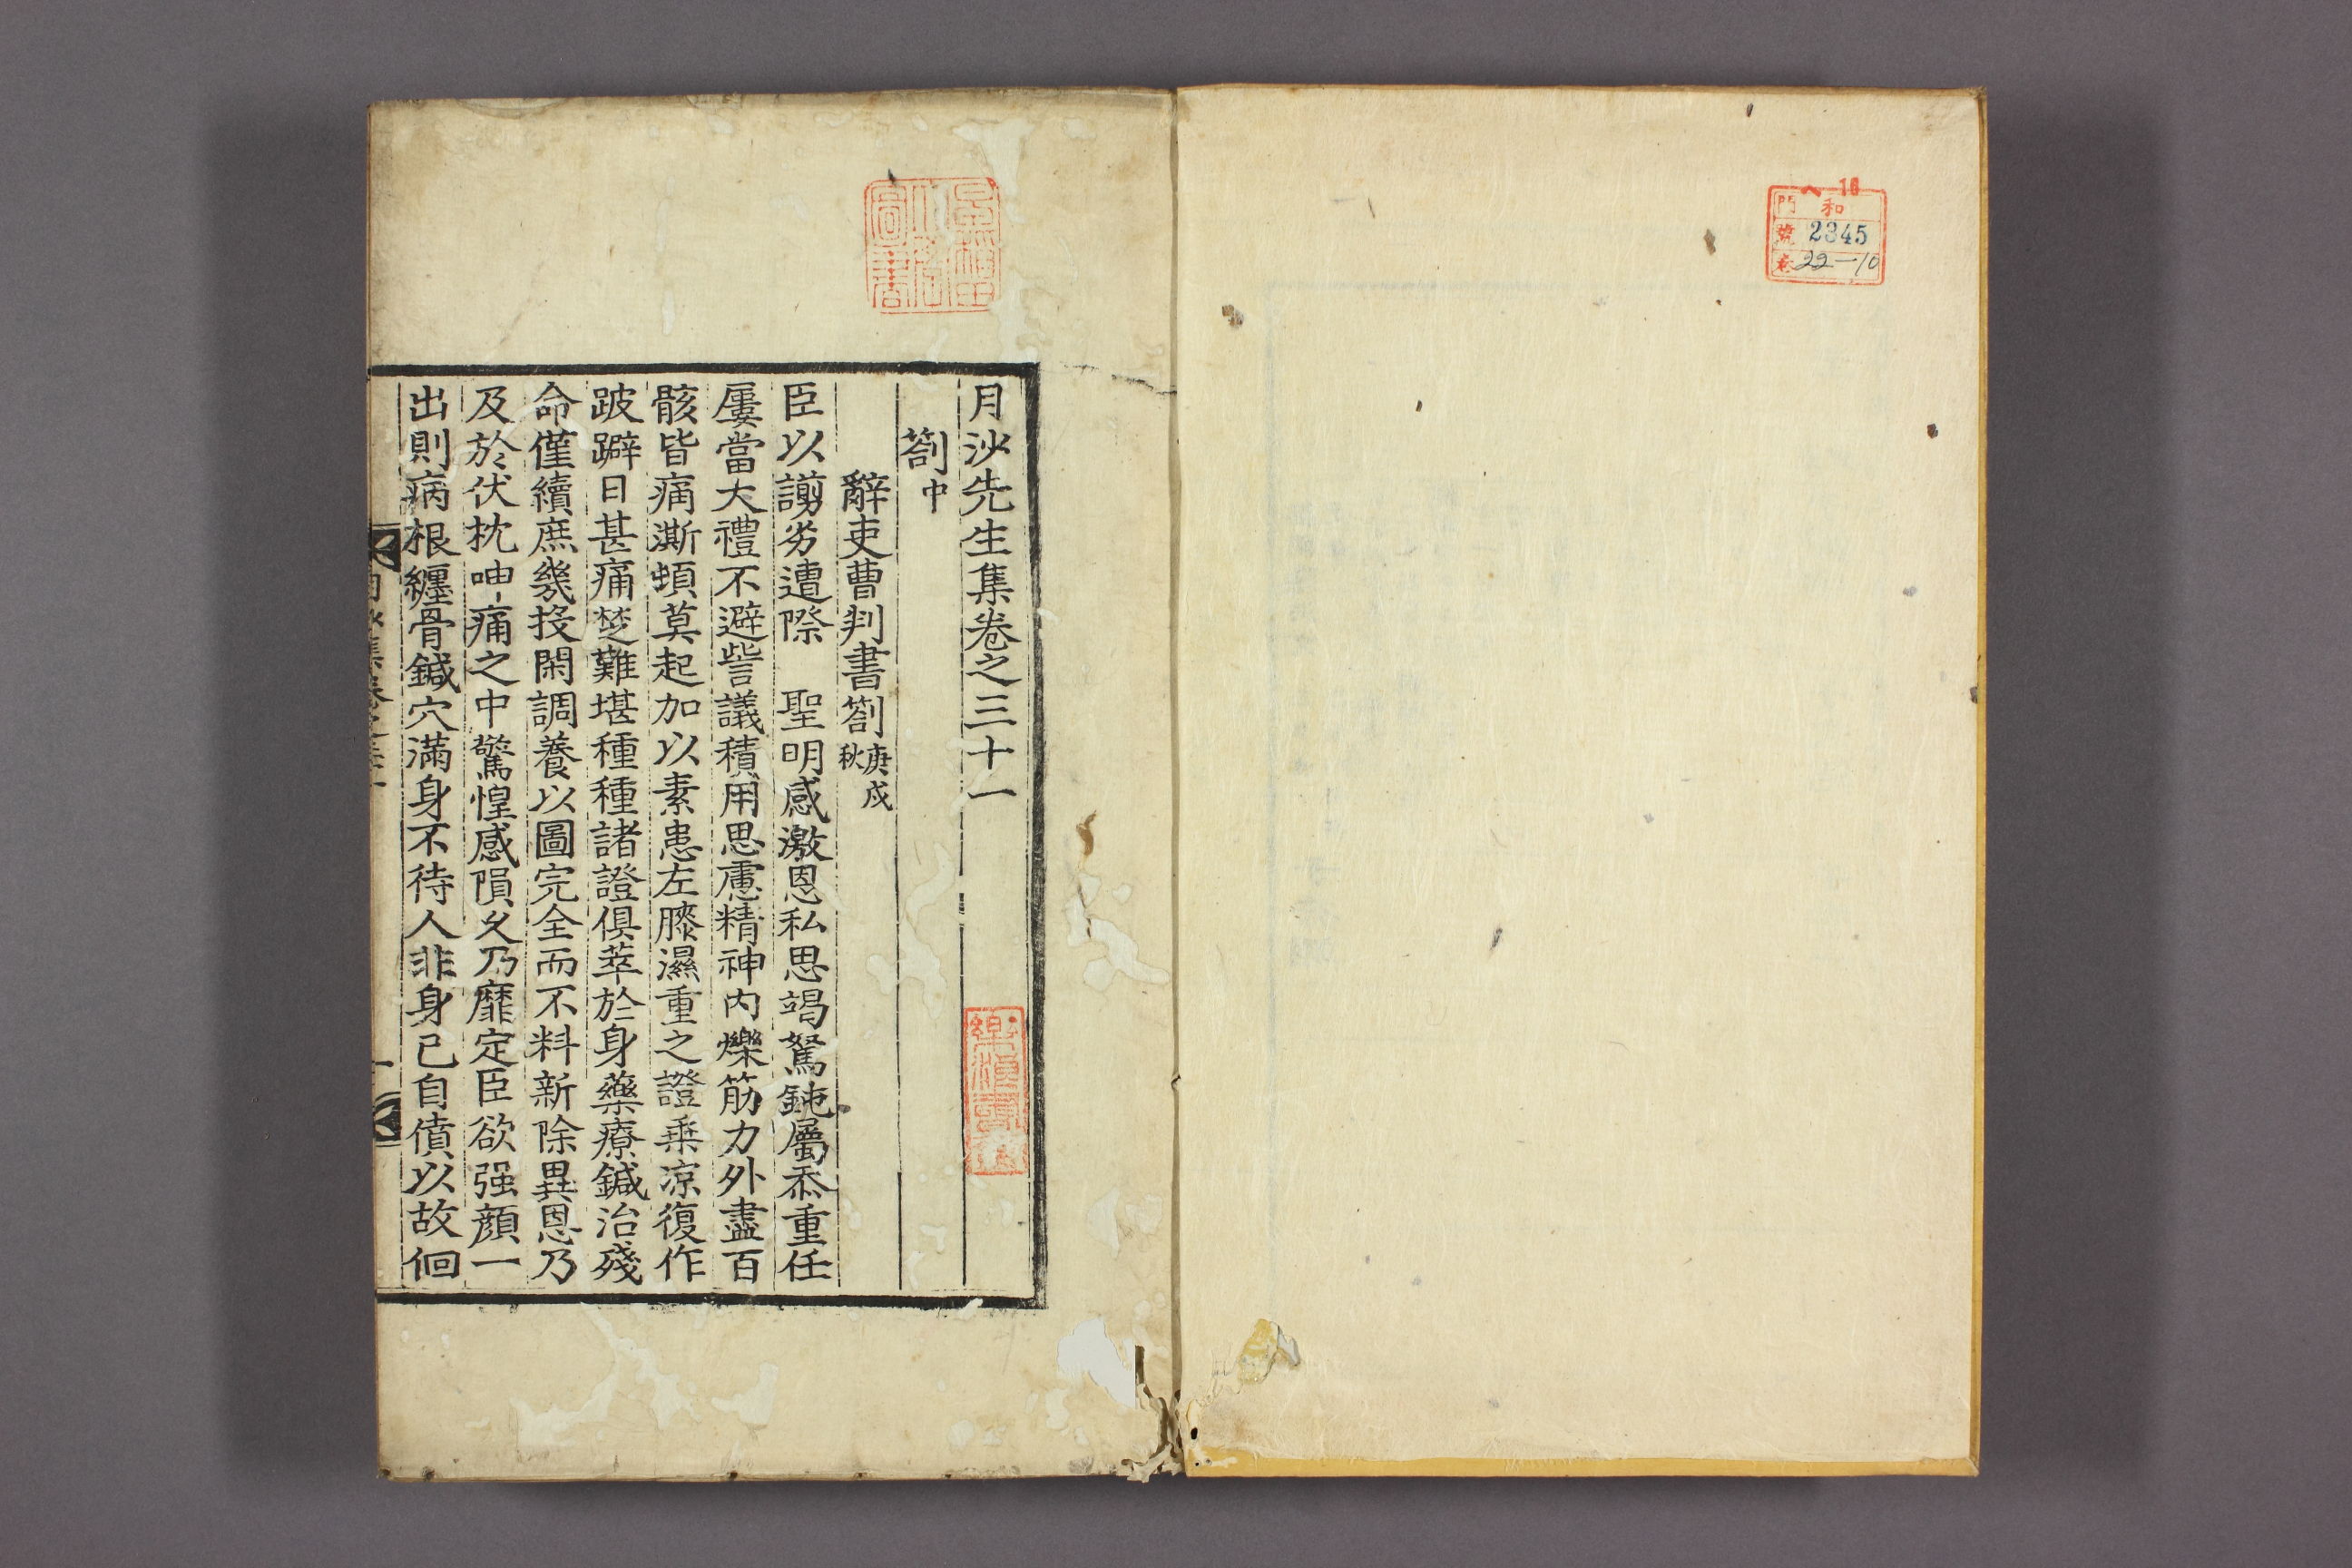 ヘ 16
門 和
號 2345
卷 22-10
月沙先生集卷之三十一
劄中
辭吏曹判書劄庚戌秋
臣以謭劣遭際 聖明感激恩私思竭駑鈍屬忝重任
屢當大禮不避訾議積用思慮精神内爍筋力外盡百
骸皆痛澌頓莫起加以素患左膝濕重之證乗凉復作
跛躃日甚痛楚難堪種種諸證俱萃於身藥療鍼治殘
命僅續庶幾投閑調養以圖完全而不料新除異恩乃
及於伏枕呻痛之中驚惶感隕久乃靡定臣欲强顔一
出則病根纏骨鍼穴滿身不待人非身已自僨以故徊